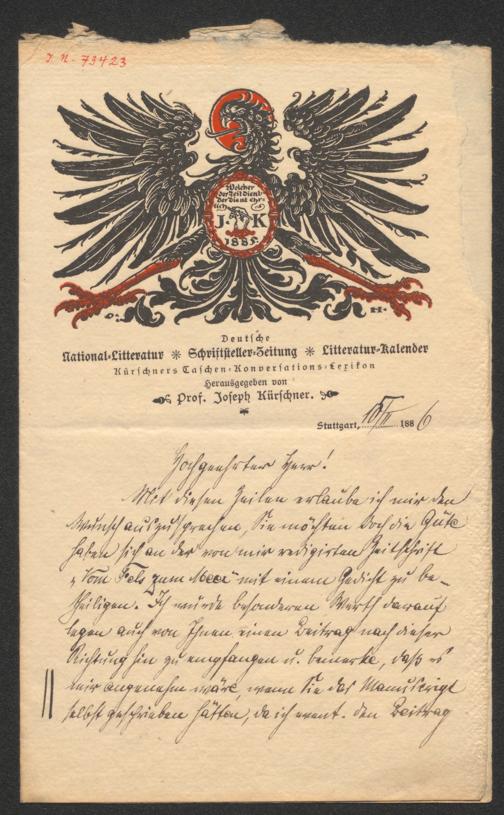 J. N. 79423
Welcher
der Zeit dient
der dient ehr-
lich
J. K
1885.
O. H.
Deutsche
National-Litteratur * Schriftsteller-Zeitung * Litteratur-Kalender
Kürschners Taschen-Konversations-Lexikon
Herausgegeben von
Prof. Joseph Kürschner.
Stuttgart, 1886
Hochgeehrter Herr!
Mit diesen Zeilen erlaube ich mir den
Wunsch auszusprechen, Sie möchten doch die Güte
haben sich an der von mir redigirten Zeitschrift
"Vom Fels zum Meer" mit einem Gedicht zu be-
theiligen. Ich würde besonderen Werth darauf
legen auch von Ihnen einen Beitrag nach dieser
Richtung hin zu empfangen u. bemerke, daß es
mir angenehm wäre, wenn Sie das Manuscript
selbst geschrieben hätten, da ich event. den Beitrag